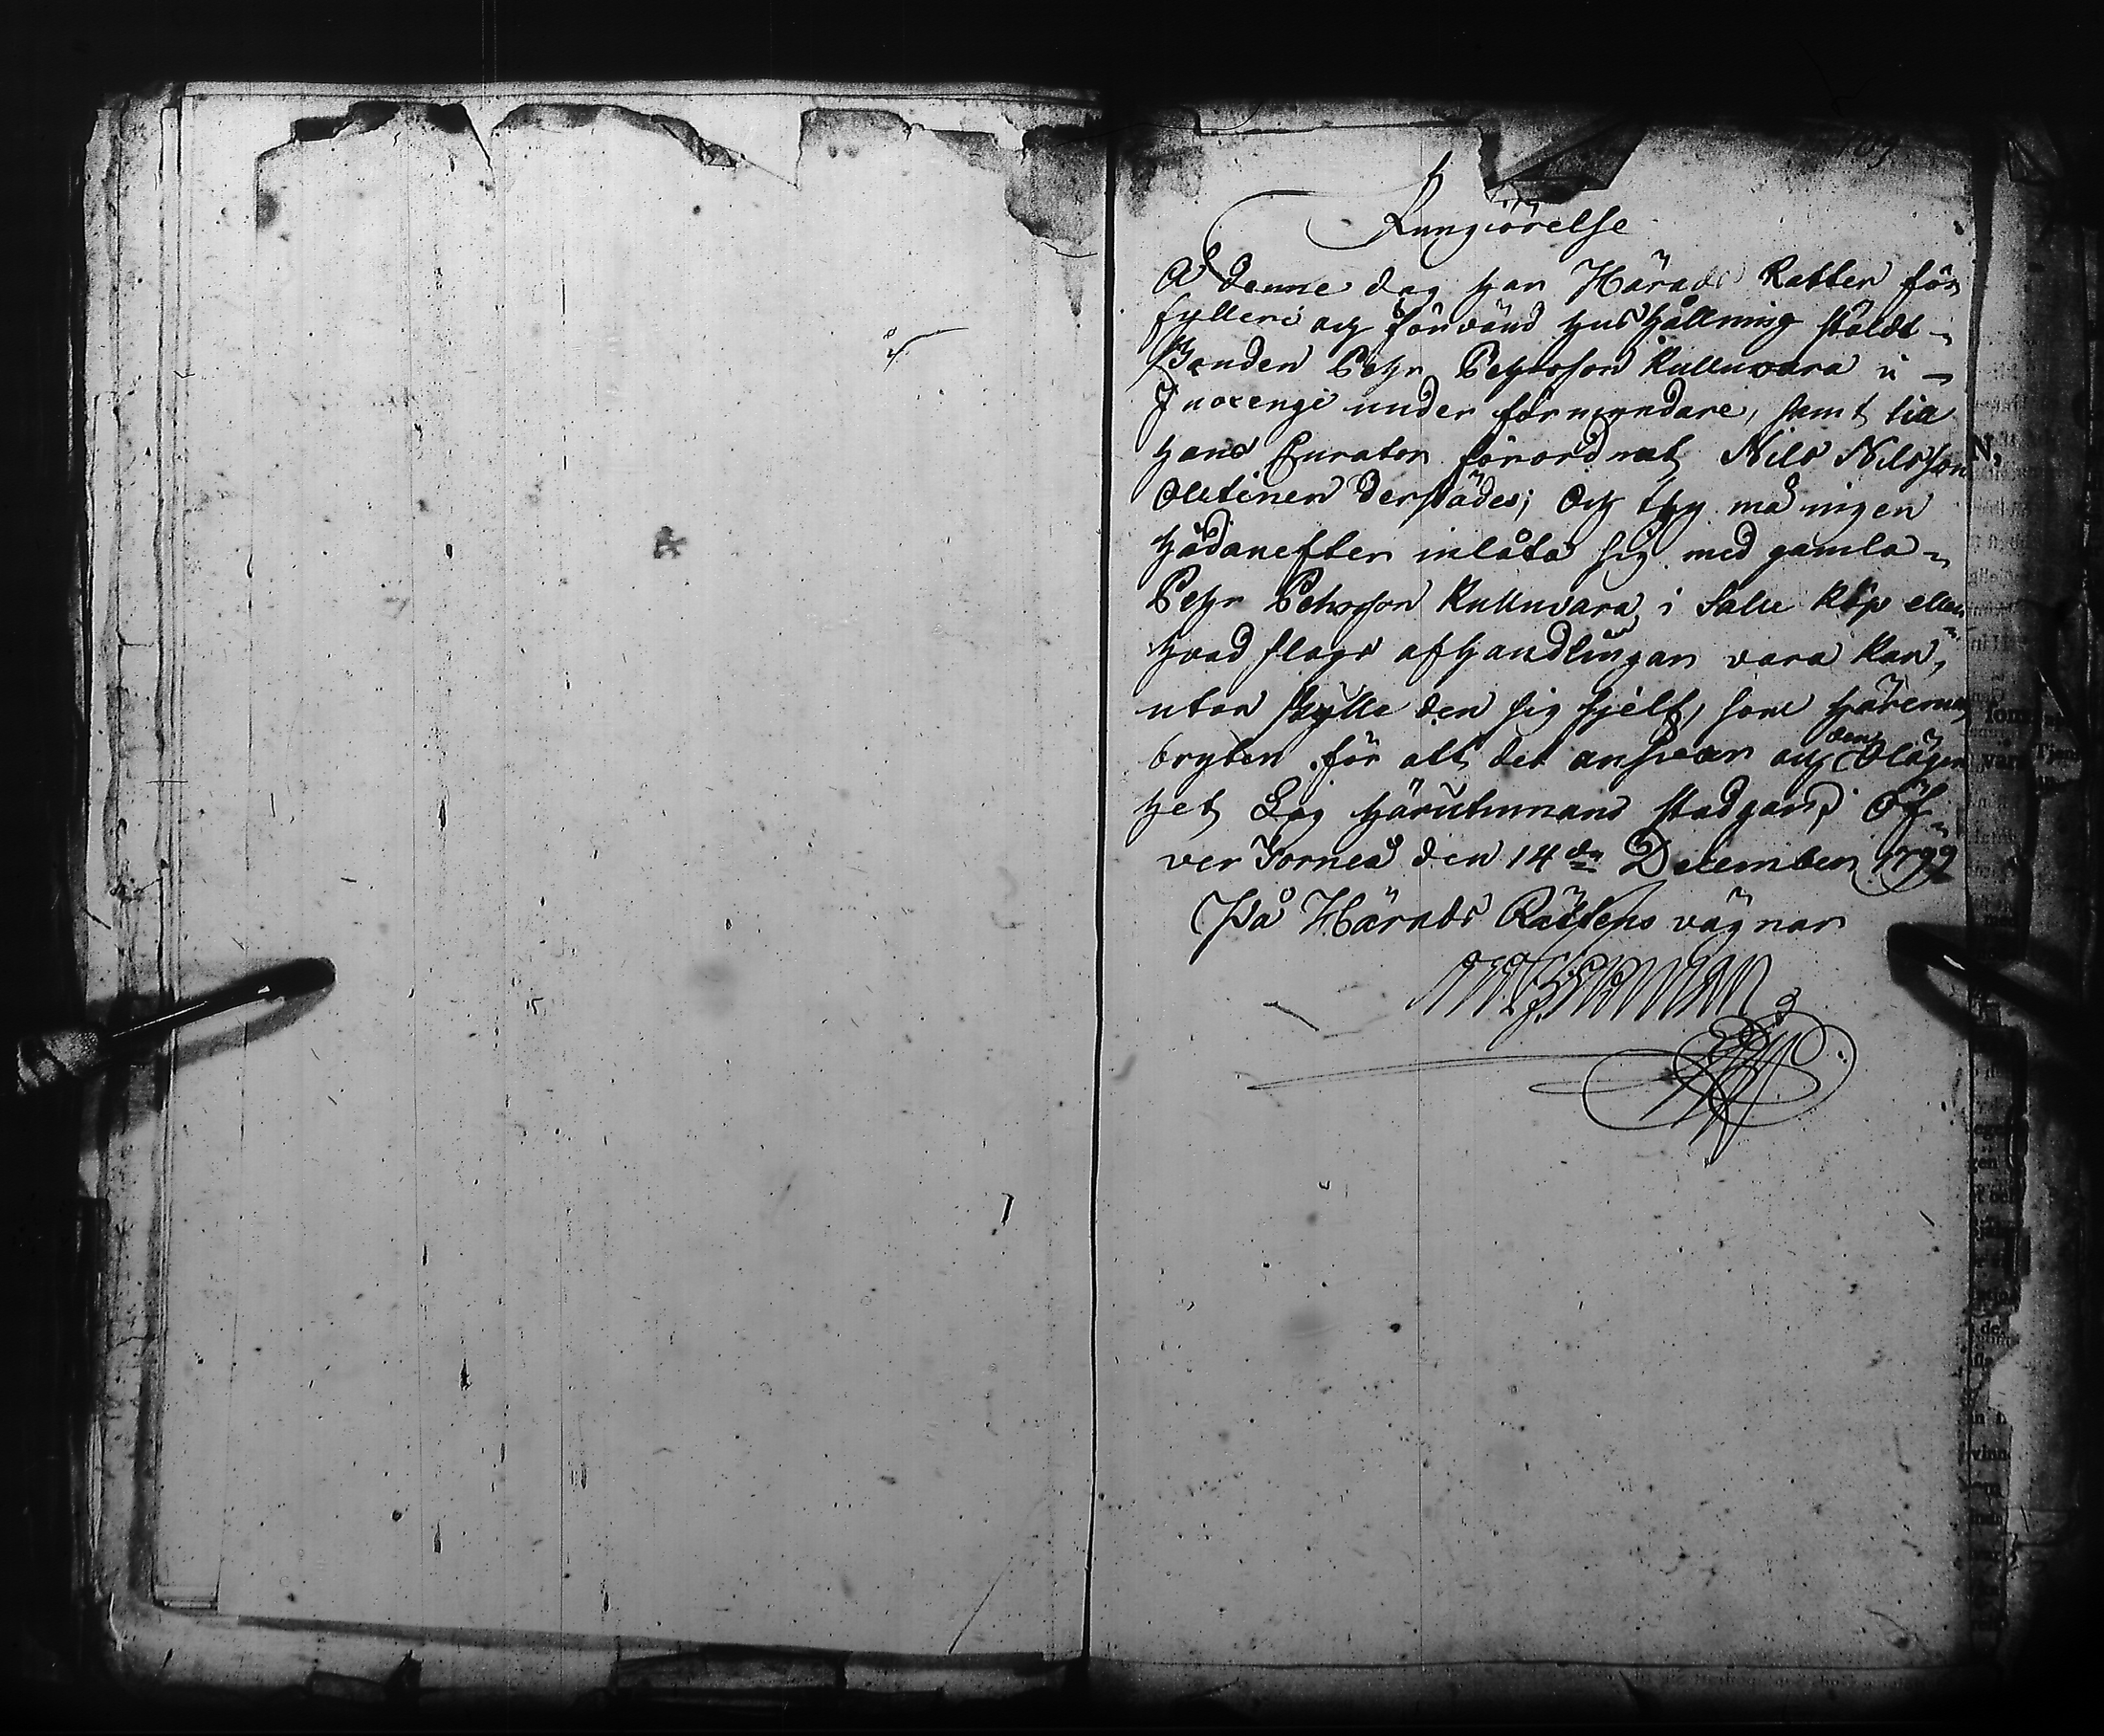 109
Kungiörelse
Å denne dag har Härads Rätten för
fylleri och förvänd hushållning stäldt
Bonden Pehr Pehrsson Kulluvara i
Juoxengi under förmyndare, samt till
hans Curator förordnat Nils Nilsson
Olutinen derstädes; Och thy må ingen
hädanefter inlåta sig med gamla
Pehr Pehrsson Kulluvara i Salu Köp eller
hvad slags afhandlingar vara kan,
utan skylle den sig sjelf, som häremot
bryter för alt det answar och den Olägen
het Lag härutinnan stadgar; Öf
ver Torneå den 14de December 1799
På Härads Rättens vägnar